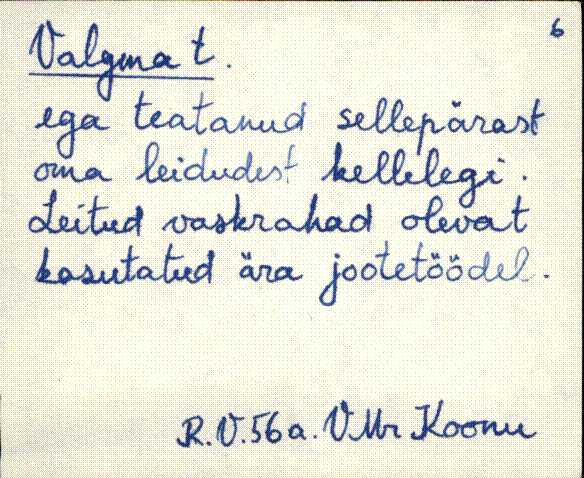 6
Valgma t.
ega teatanud sellepärast
oma leidudest kellelegi.
Leitud vaskrahad olevat
kasutatud ära jootetöödel.
R.V.56a. V.Mr Koonu